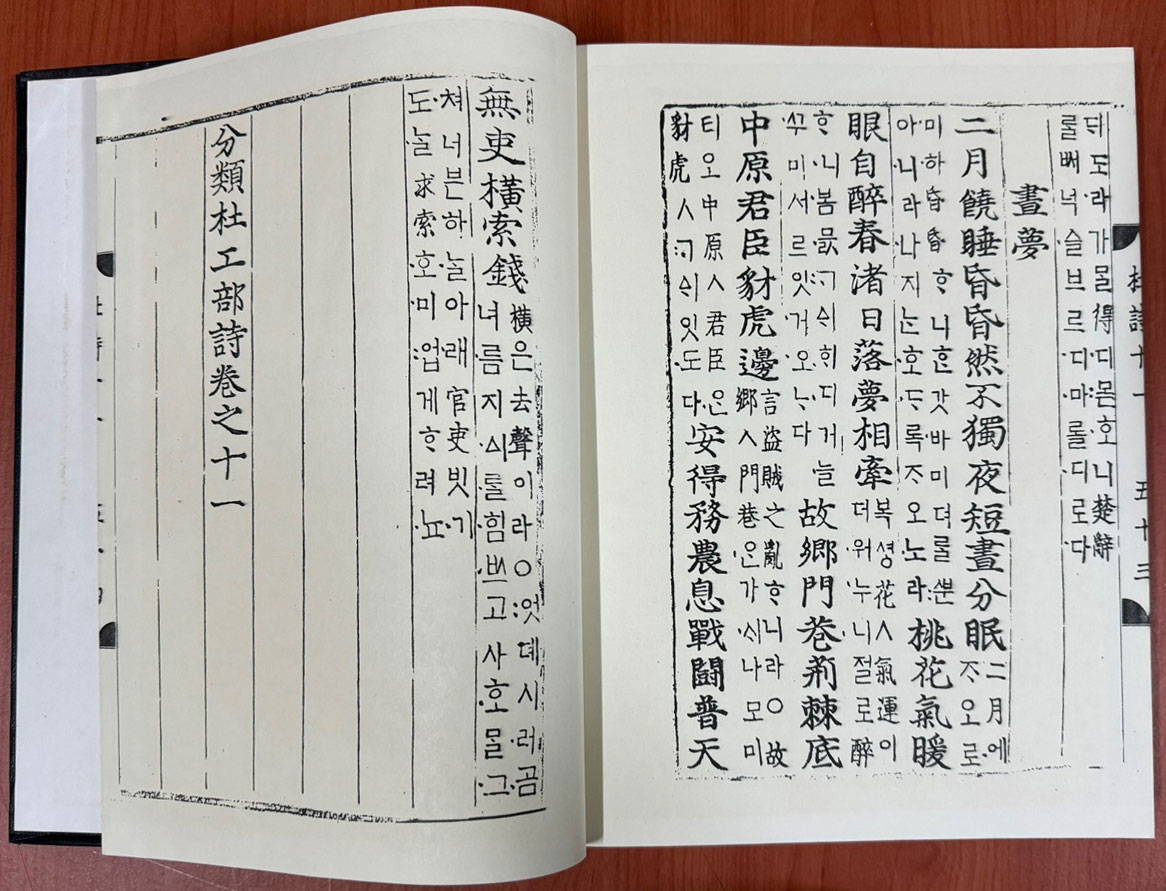 杜詩十一 五十三
뒤도라가ᄆᆞᆯ得디몯호니楚辭
ᄅᆞᆯᄡᅥ넉슬브르디마롤디로다
晝夢
二月饒睡昏昏然不獨夜短晝分眠二月에
ᄌᆞ오로
미하昏昏ᄒᆞ니ᄒᆞᆫ갓바미뎌ᄅᆞᆯᄲᅮᆫ
아니라나지ᄂᆞᆫ호ᄃᆞ록ᄌᆞ오노라桃花氣暖
眼自醉春渚日落夢相牽복셩花ㅅ氣運이
더워누니절로醉
ᄒᆞ니봄믌ᄀᆞᅀᅢᄒᆡ디거늘
ᄭᅮ미서르잇거오ᄂᆞ다故鄉門巷荊棘底
中原君臣豺虎邊言盜賊之亂ᄒᆞ니라○故
鄉ㅅ門巷은가ᄉᆡ나모미
티오中原ㅅ君臣은
豺虎ㅅᄀᆞᅀᅢ잇도다安得務農息戰鬪普天
無吏橫索錢橫은去聲이라○엇뎨시러곰
녀름지ᅀᅵᄅᆞᆯ힘ᄡᅳ고사호ᄆᆞᆯ그
쳐너븐하ᄂᆞᆯ아래官吏빗기
도ᄂᆞᆯ求索호미업게ᄒᆞ려뇨
分類杜工部詩卷之十一